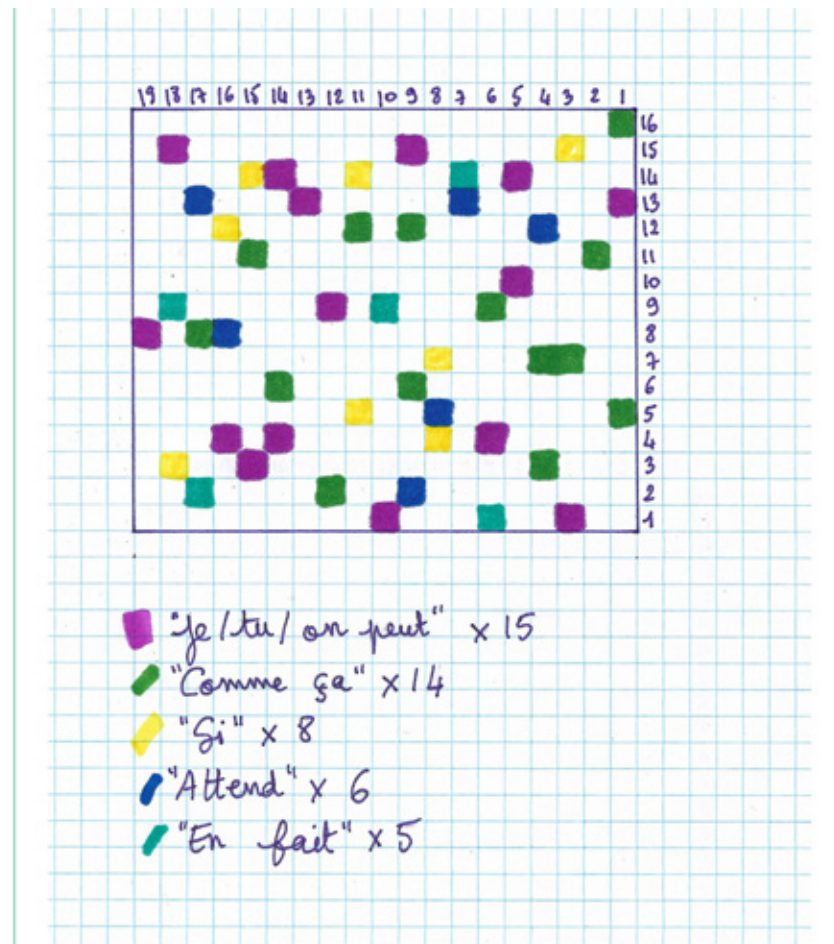 19 18 17 16 15 14 13 12 11 10 9 8 7 6 5 4 3 2 1
16
15
14
13
12
11
10
9
8
7
6
5
4
3
2
1
"Je/tu/on peut" x 15
"Comme ça" x 14
"Si" x 8
"Attend" x 6
"En fait" x 5